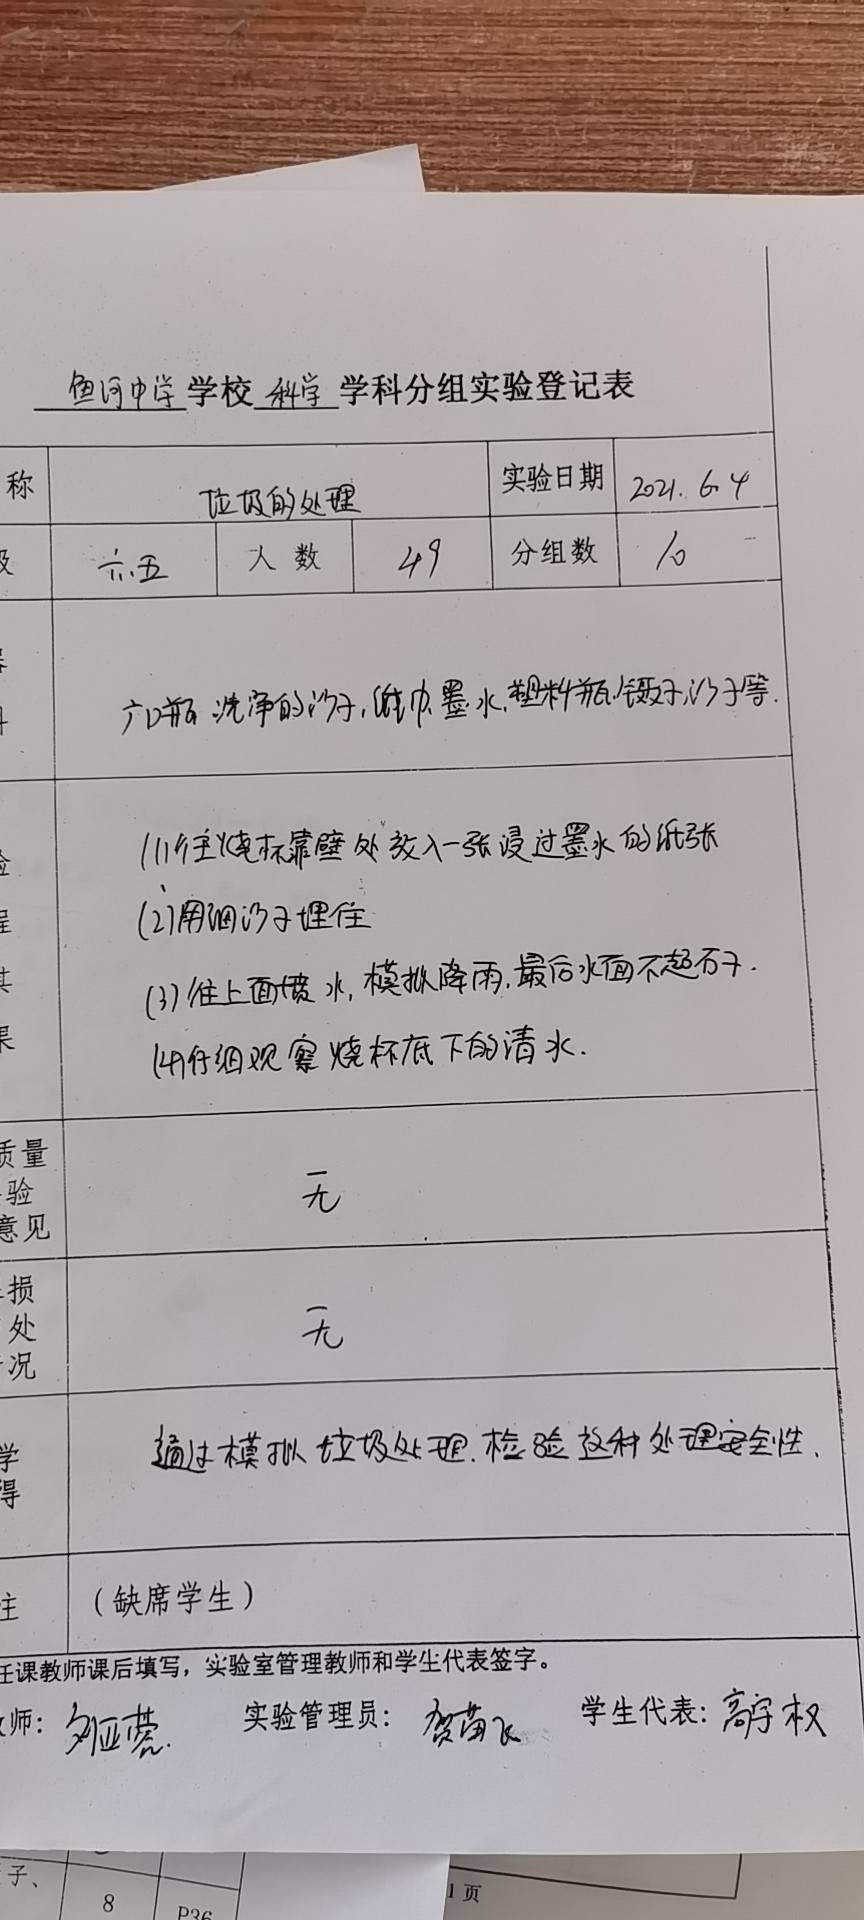 鱼河中学学校科学学科分组实验登记表
称 垃圾的处理 实验日期 2021.6.4
级 六.五 人数 49 分组数 10
广口瓶 洗净的沙子,纸巾,墨水,塑料瓶,镊子,沙子等.
(1)往烧杯靠壁处放入一张浸过墨水的纸张
验
(2)用细沙子埋住
程
(3)往上面喷水,模拟降雨,最后水面不超石子.
其
果
(4)仔细观察烧杯底下的清水.
质量
验 无
意见
损
处 无
况
学 通过模拟垃圾处理.检验这种处理安全性.
得
注 (缺席学生)
任课教师课后填写，实验室管理教师和学生代表签字。
师: 实验管理员: 贺苗飞 学生代表: 高宇权
子、
8 P36
1 页